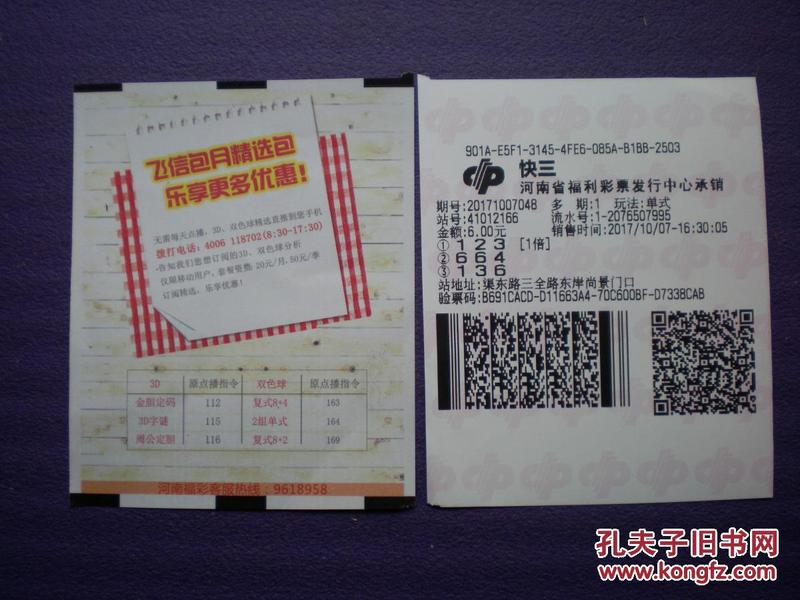 飞信包月精选包
乐享更多优惠!
无需每天点播,3D、双色球精选直推到您手机
拨打电话:4006 118702(8:30-17:30)
-告知我们您想订阅的3D、双色球分析
仅限移动用户,套餐资费:20元/月,50元/季
订阅精选,乐享优惠!
3D 原点播指令 双色球 原点播指令
金胆定码 112 复式8+4 163
3D字谜 115 2组单式 164
周公定胆 116 复式8+2 169
河南福彩客服热线:9618958
901A-E5F1-3145-4FE6-085A-B1BB-2503
快三
河南省福利彩票发行中心承销
期号:20171007048 多 期:1 玩法:单式
站号:41012166 流水号:1-2076507995
金额:6.00元 销售时间:2017/10/07-16:30:05
① 1 2 3 [1倍]
② 6 6 4
③ 1 3 6
站地址:渠东路三全路东岸尚景门口
验票码:B691CACD-D11663A4-70C600BF-D7338CAB
孔夫子旧书网
www.kongfz.com